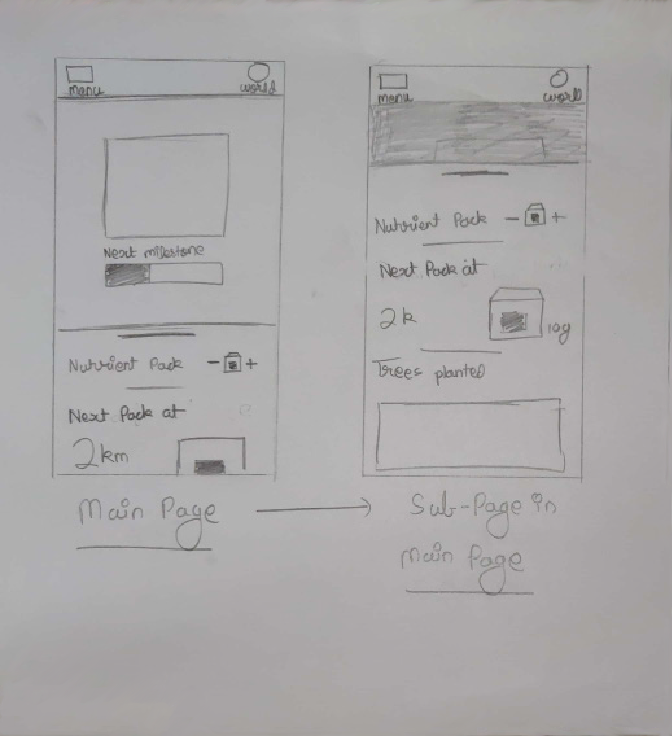 menu
world
Next milestone
Nutrient Pack - +
Next Pack at
2km
Main Page
menu
world
Nutrient Pack - +
Next Pack at
2k
10g
Trees planted
Sub-Page in
Main Page